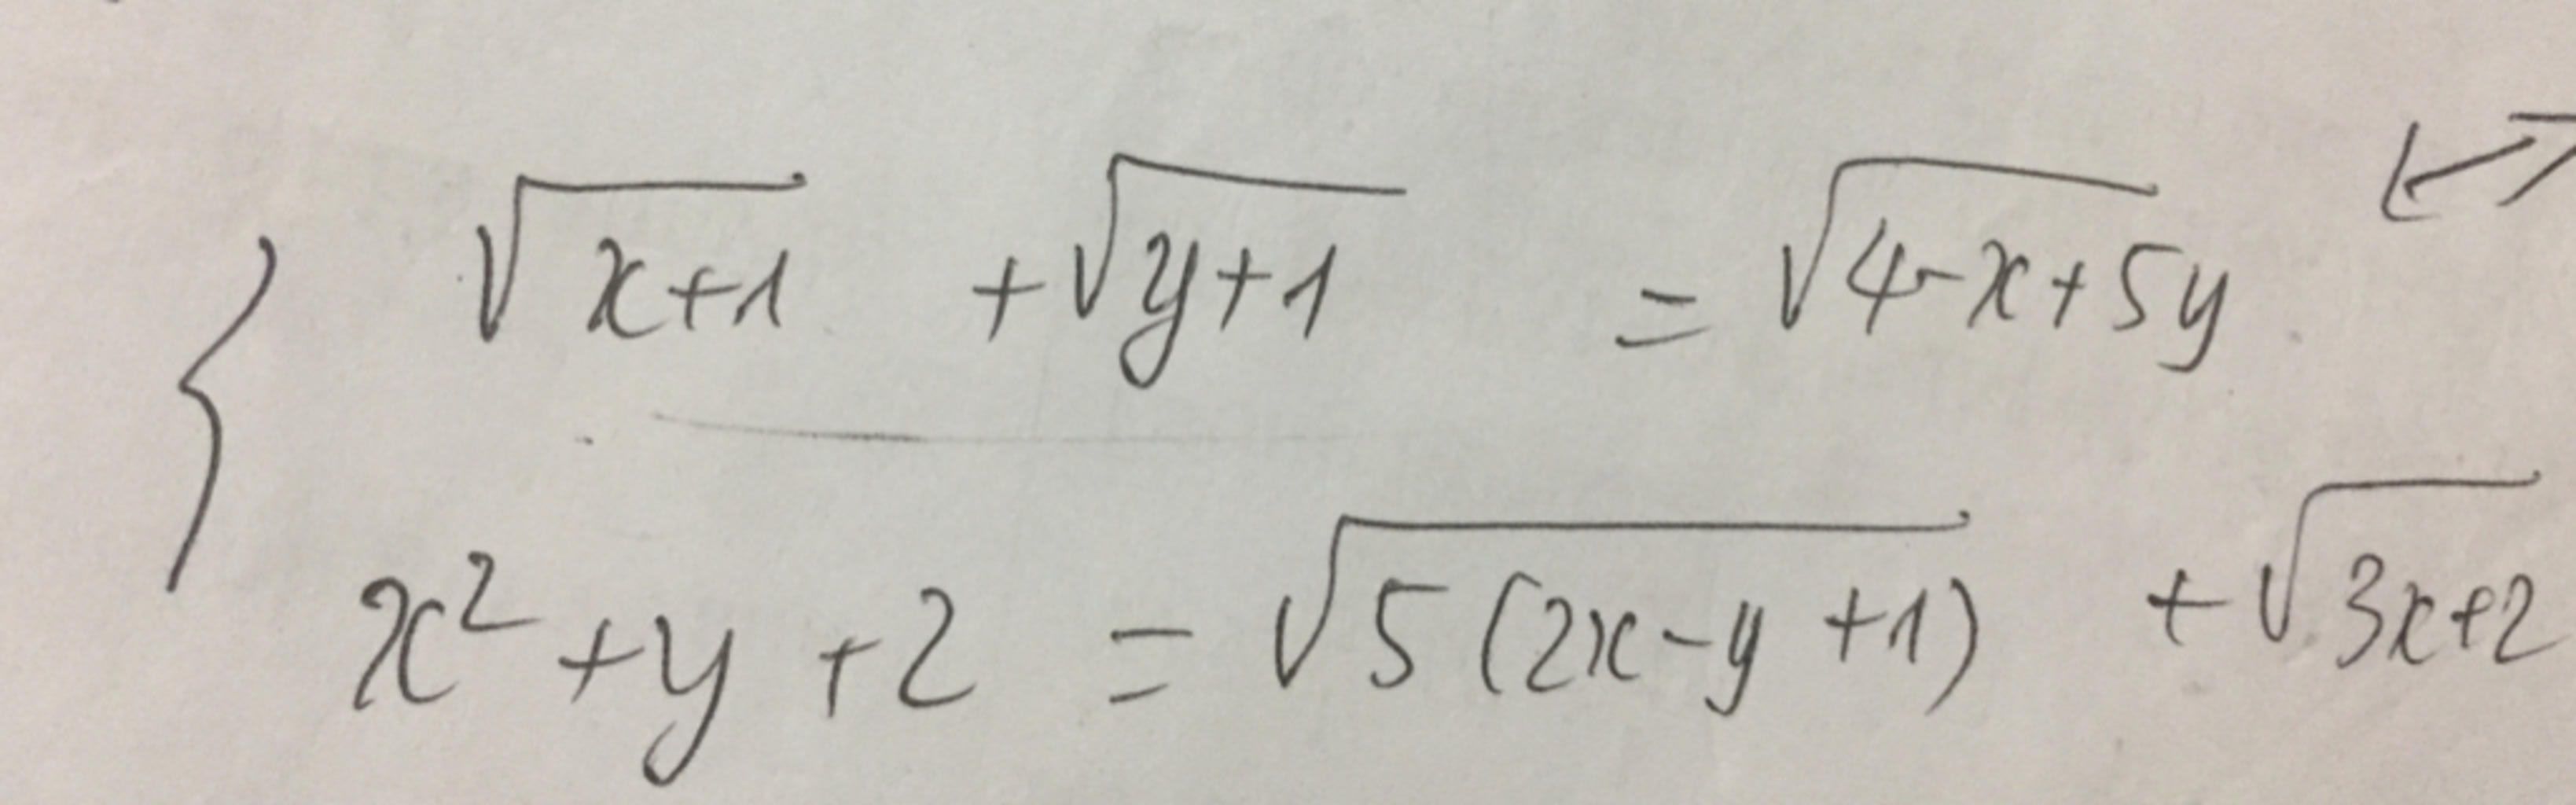 √(x+1) + √(y+1) = √(4-x+5y)
x² + y + 2 = √(5(2x-y+1)) + √(3x+2)